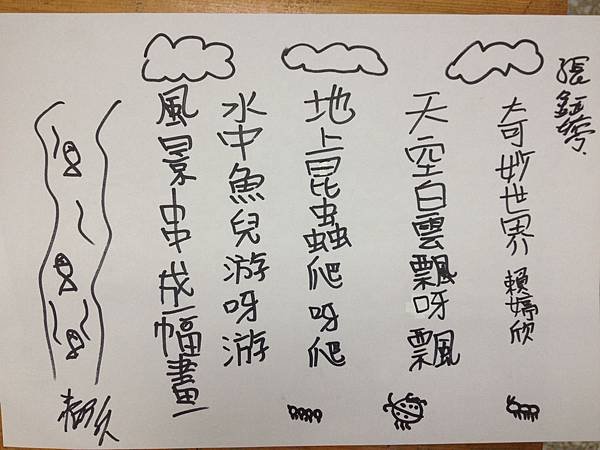 奇妙世界 賴婷欣
天空白雲飄呀飄
地上昆蟲爬呀爬
水中魚兒游呀游
風景串成一幅畫